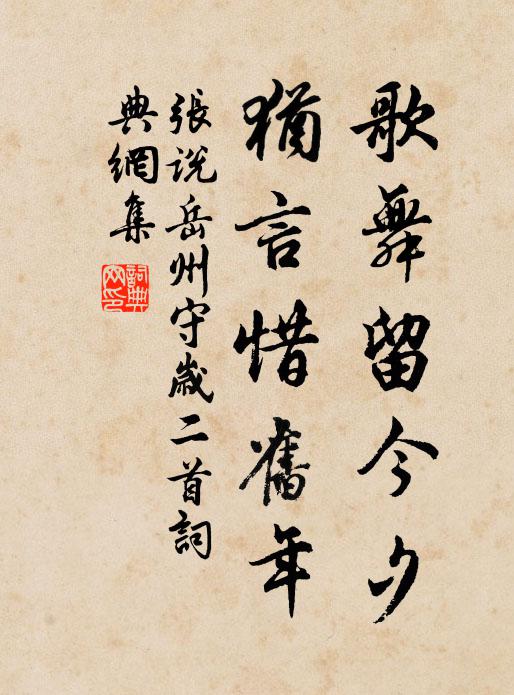 歌舞留今夕
猶言惜舊年
張説岳州守歲二首詞
典網集
詞典網印